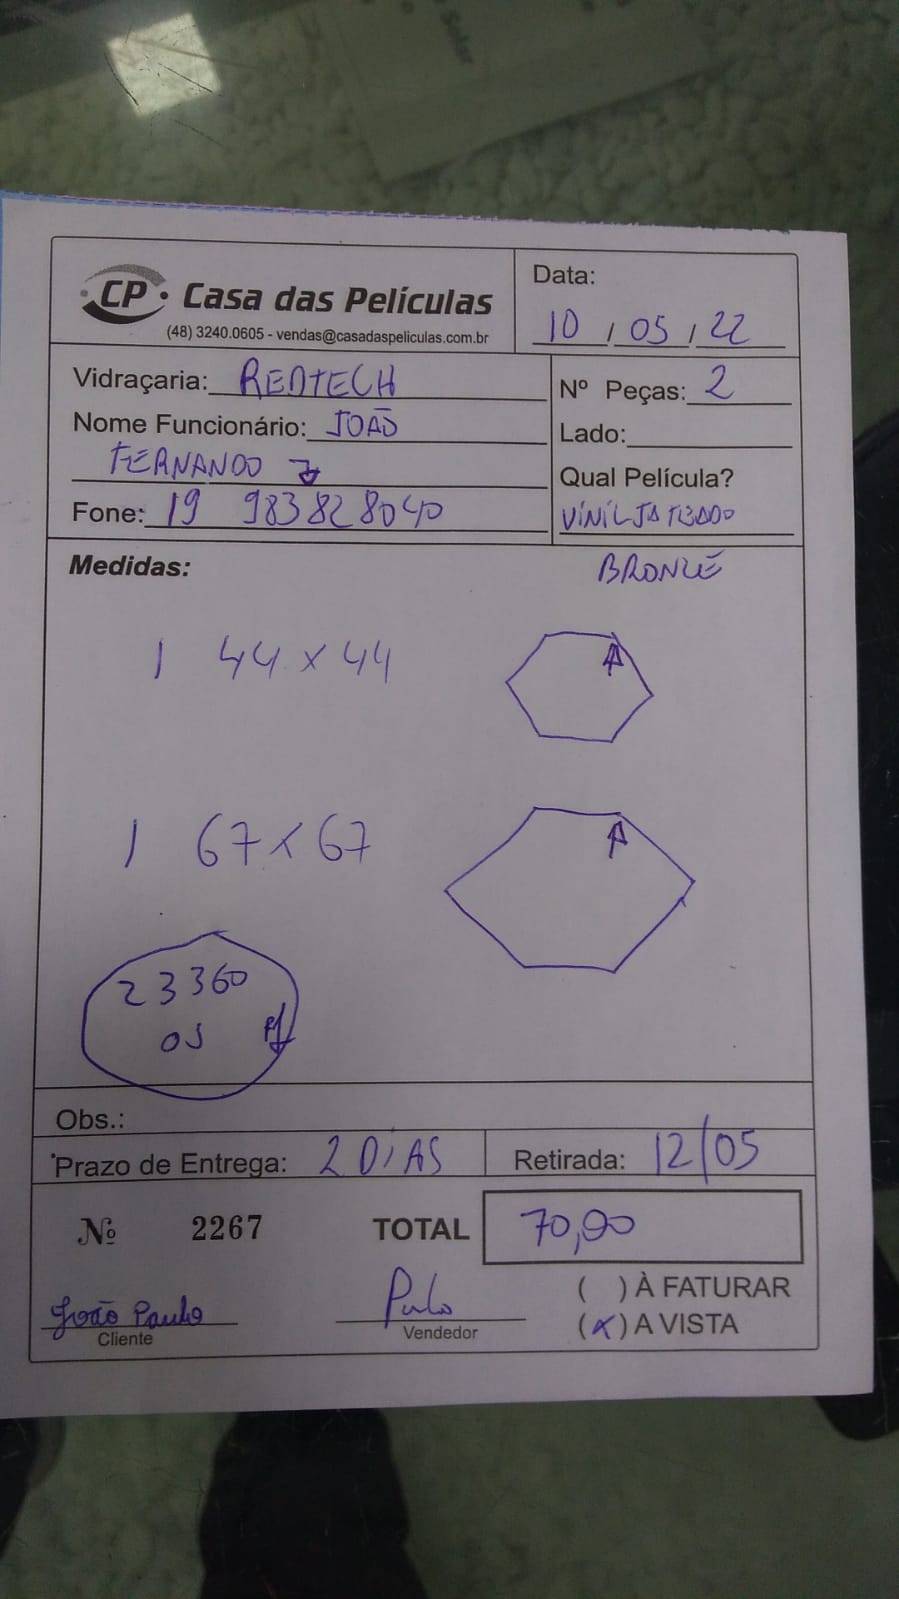 CP Casa das Películas
(48) 3240.0605 - vendas@casadaspeliculas.com.br
Data:
10 / 05 / 22
Vidraçaria: REDTECH
Nome Funcionário: JOÃO
FERNANDO
Fone: 19 983828040
Nº Peças: 2
Lado:
Qual Película?
VINIL JATEADO
BRONZE
Medidas:
1 44 x 44
1 67 x 67
23360
OS
Obs.:
Prazo de Entrega: 2 DIAS
Retirada: 12/05
Nº 2267
TOTAL 70,00
( ) À FATURAR
(x) A VISTA
João Paulo
Cliente
Vendedor